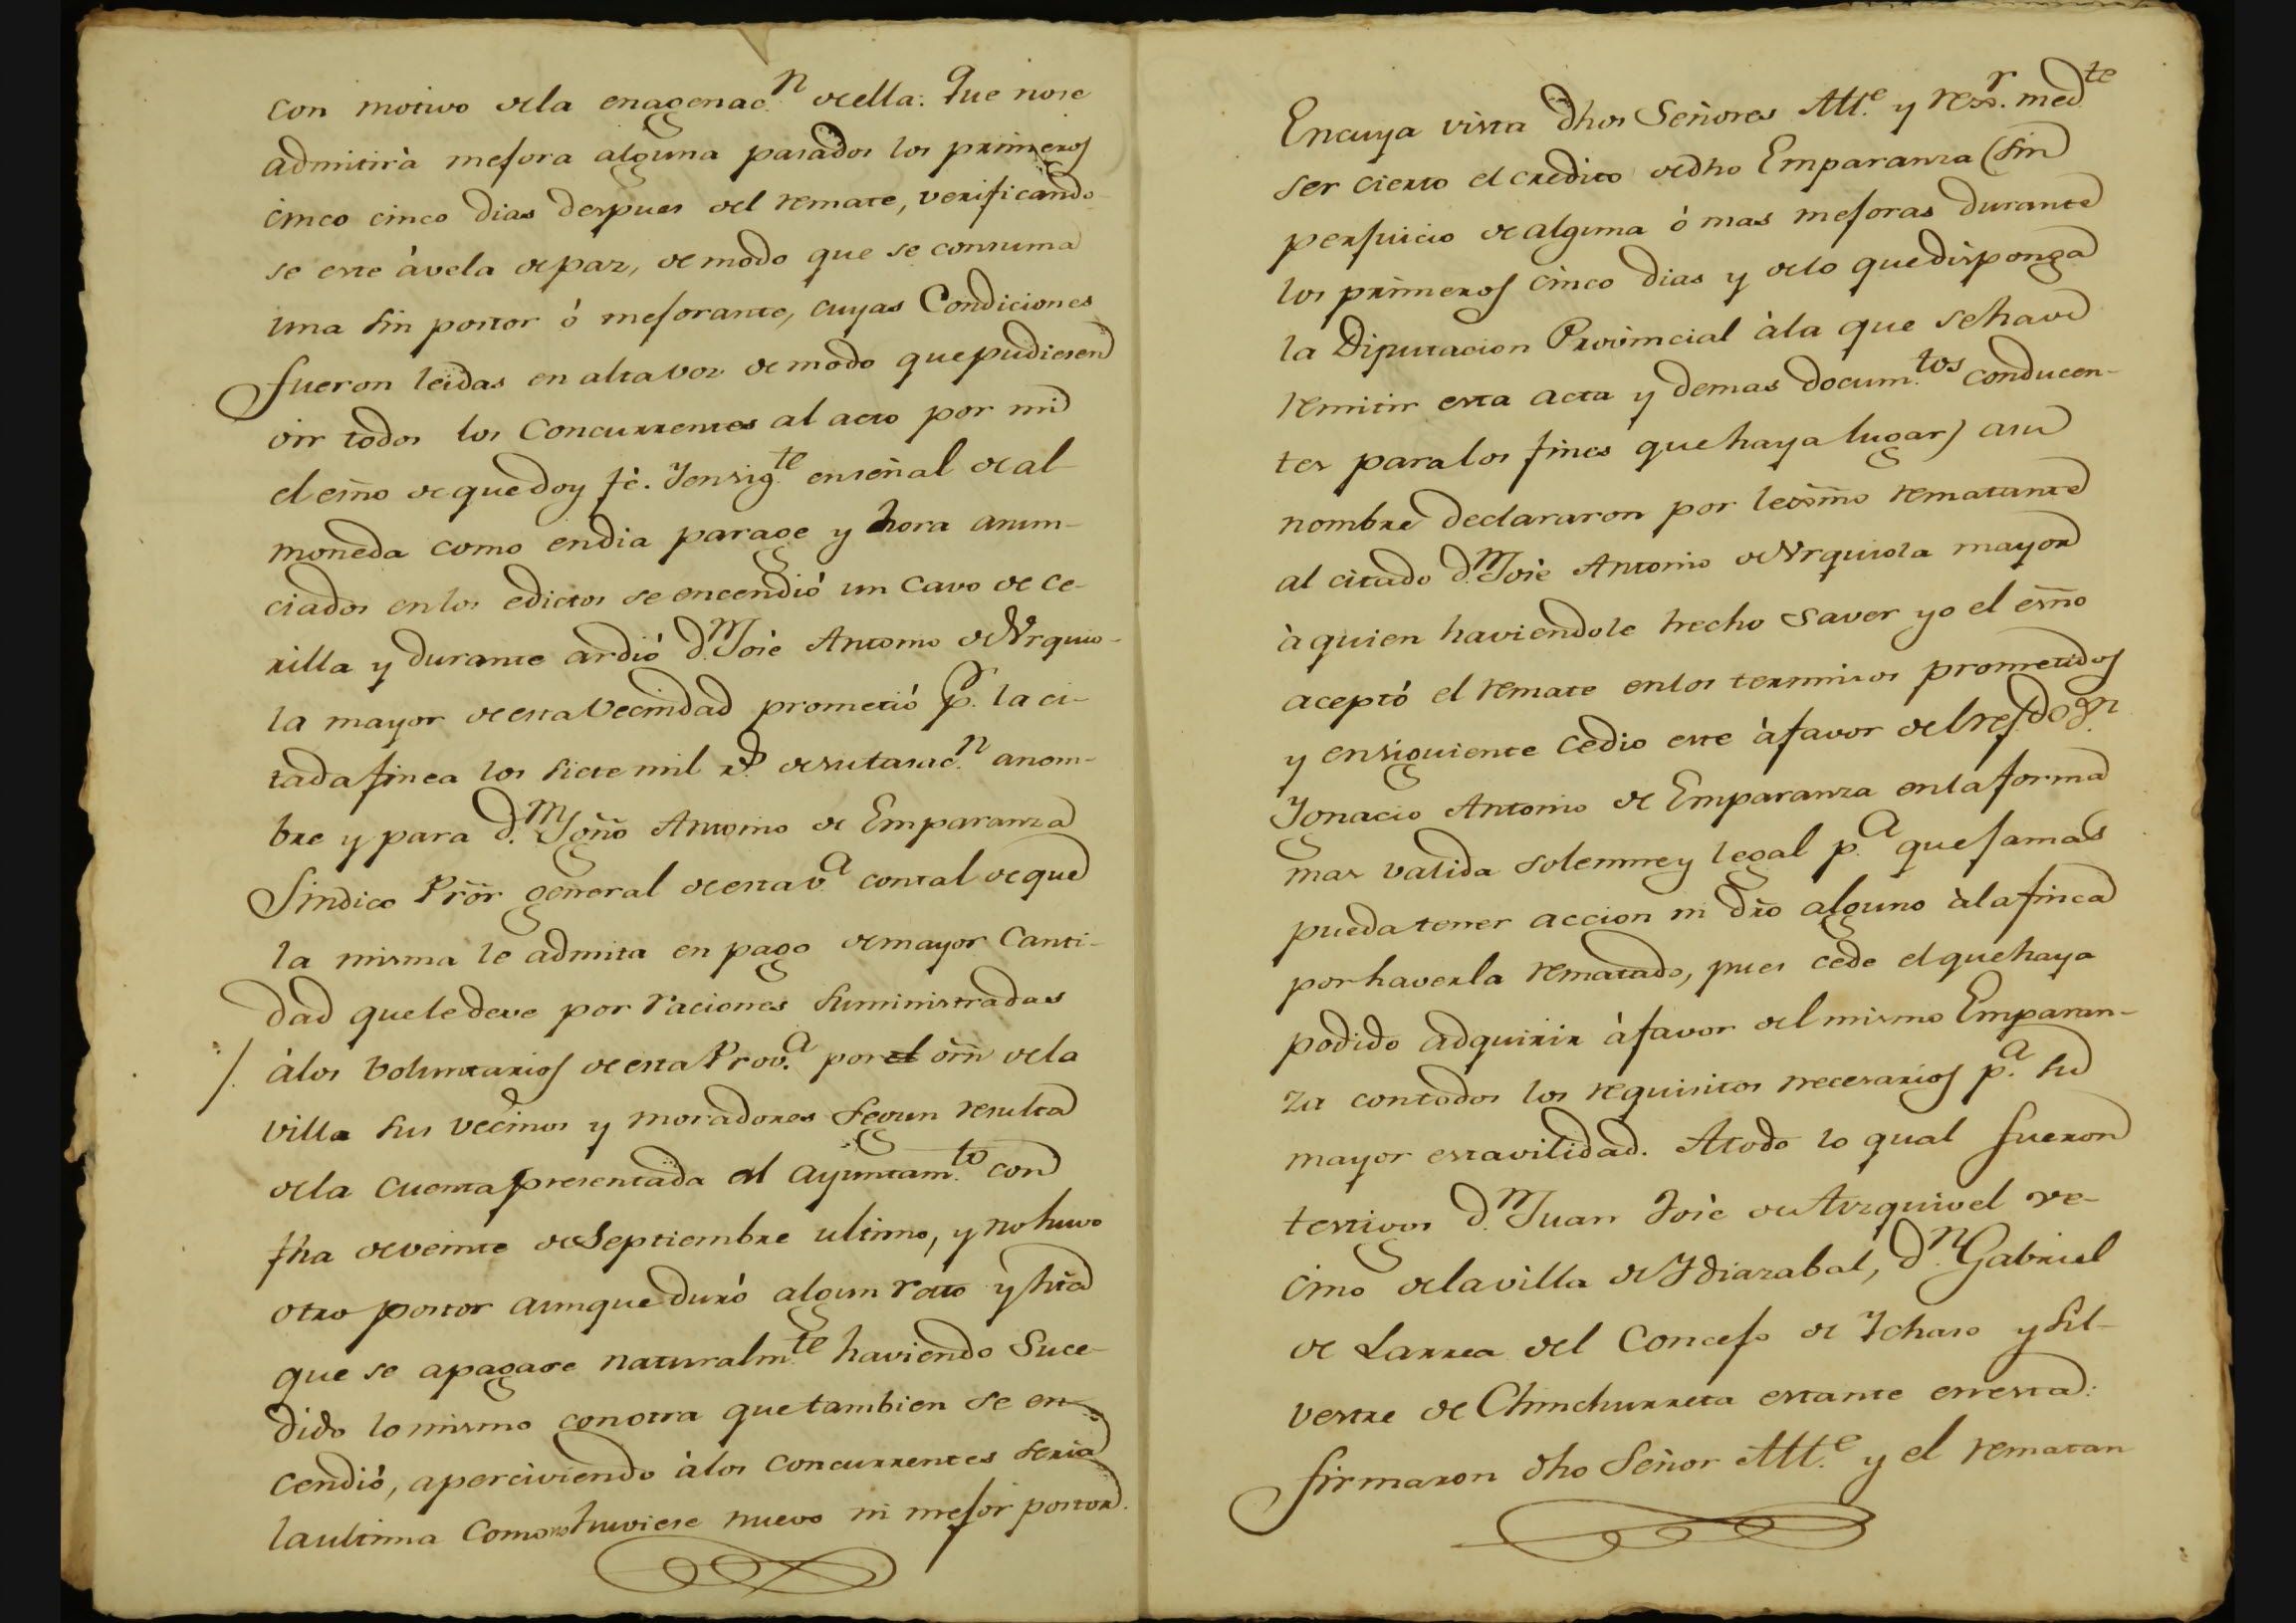 con motivo de la enagenac.n de ella: Que no se
admitirà mejora alguna pasados los primeros
cinco cinco dias despues del remate, verificando
se este à vela de paz, de modo que se consuma
una sin postor ó mejorante, cuyas Condiciones
fueron leidas en alta voz de modo que pudiesen
oir todos los Concurrentes al acto por mi
el esño de que doy fè. Y en sig.te en señal de al-
moneda como en dia parage y hora anun-
ciados en los edictos se encendió un cavo de ce-
rilla y durante ardió d.n Josè Antonio de Urquio-
la mayor de esta Vecindad prometió p.r la ci-
tada finca los siete mil r.s de su tasac.n a nom-
bre y para d.n Ygño Antonio de Emparanza
Sindico Prõr general de esta v.a con tal de que
la misma le admita en pago de mayor Canti-
dad que le deve por raciones suministradas
/. à los Voluntarios de esta Prov.a por el orñ de la
villa sus vecinos y moradores segun resulta
de la cuenta presentada al ayuntam.to con
fha de veinte de Septiembre ultimo, y no huvo
otro postor aunque duró algun rato y hta
que se apagase naturalm.te haviendo suce-
dido lo mismo con otra que tambien se en-
cendió, aperciviendo à los concurrentes seria
la ultima como no huviese nuevo ni mejor postor.
En cuya vista dhos Señores Alt.e y rex.r med.te
ser cierto el credito de dho Emparanza (sin
perjuicio de alguna ó mas mejoras durante
los primeros cinco dias y de lo que disponga
la Diputacion Provincial à la que se have
remitir esta acta y demas docum.tos conducen-
tes para los fines que haya lugar) a su
nombre declararon por lexmo rematante
al citado d.n Josè Antonio de Urquiola mayor
à quien haviendole hecho saver yo el esño
aceptó el remate en los terminos prometidos
y en siguiente cedio este à favor del ref.do d.n
Ygnacio Antonio de Emparanza en la forma
mas valida solemne y legal p.a que jamas
pueda tener accion ni dño alguno à la finca
por haverla rematado, pues cede el que haya
podido adquirir à favor del mismo Emparan-
za con todos los requisitos necesarios p.a su
mayor estavilidad. A todo lo qual fueron
testigos d.n Juan Josè de Arzquivel ve-
cino de la villa de Ydiazabal, d.n Gabriel
de Larrea del Concejo de Ychaso y Sil-
vestre de Chinchurreta estante en esta:
firmaron dho Señor Alt.e y el rematan